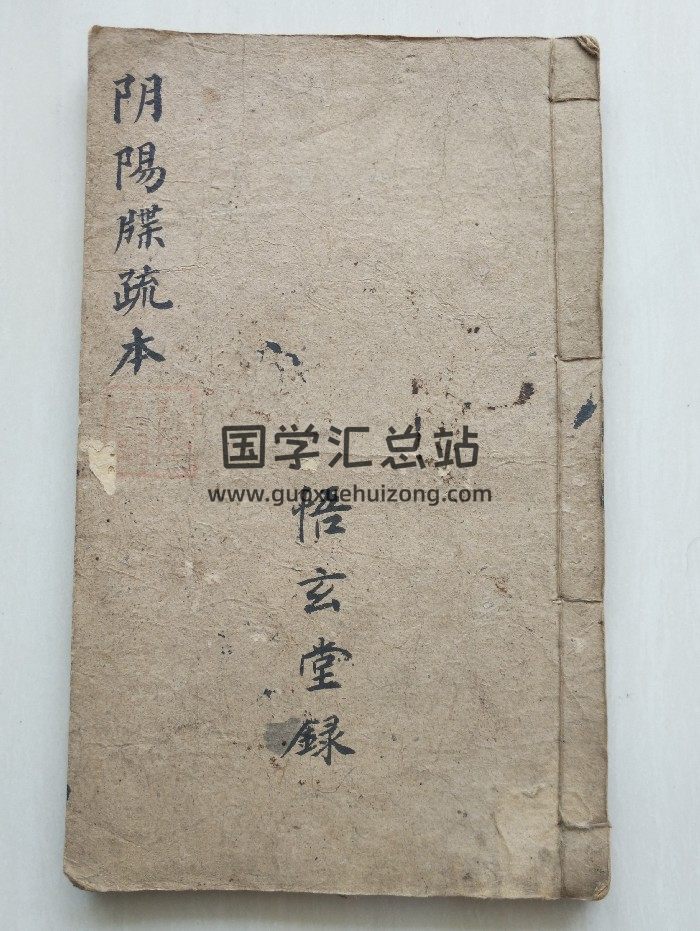 阴陽牒疏本
国学汇总站
www.guoxuehuizong.com
悟玄堂録